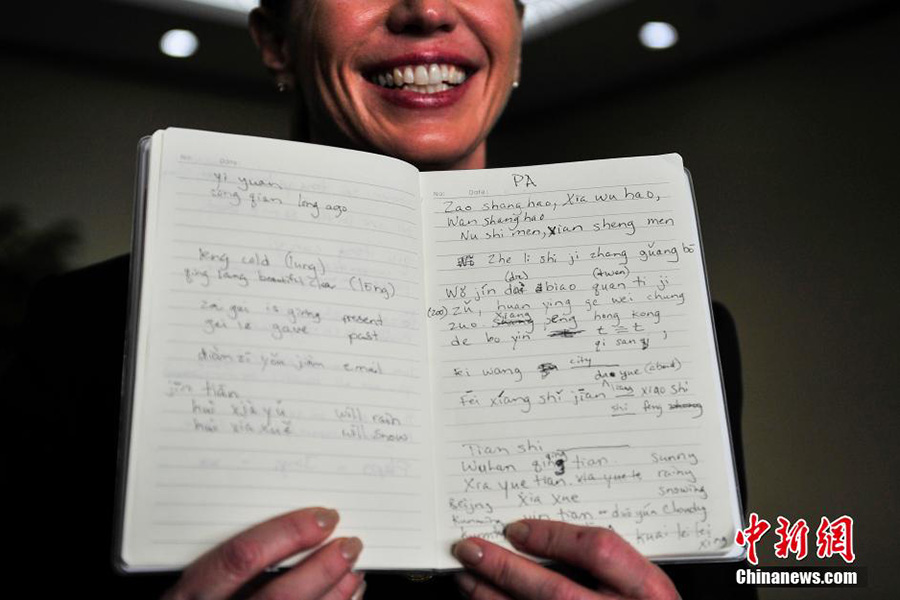 No. Date
yi yuan
cong qian long ago
leng cold (lung)
qing lang beautiful clear (lōng)
za gei is giving present
gei le gave past
diàn zǐ yóu jiàn email
jīn tiān
huì xià yǔ will rain
huì xià xuě will snow
No. Date
PA
Zao shang hao, Xia wu hao,
Wan shang hao
Nu shi men, xian sheng men
Zhe li shi ji zhang guǎng bō
Wǒ jīn dai biao quan ti ji
(zoo) zǔ, huan ying ge wei chung
zuo xiang hong kong
de bo yin
qi sang
ki wang city
da yue (about)
Fēi xíang shí jiān liang xiao shi
shi feng
Tian shi
Wuhan qing tian sunny
Xia yue tian xia yue te rainy
snowing
Beijng xia xue
Kunming yin tian = duō yún cloudy
kuai le fei
xing
中新网
Chinanews.com